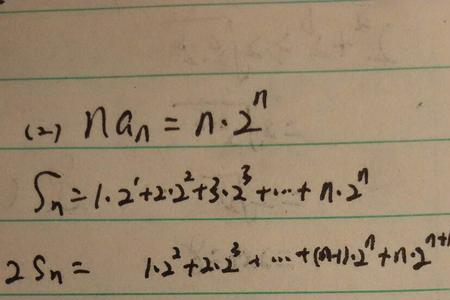 (2) naₙ = n·2ⁿ
Sₙ = 1·2¹+2·2²+3·2³+···+ n·2ⁿ
2Sₙ = 1·2²+2·2³+ ···+(n-1)·2ⁿ+n·2ⁿ⁺¹